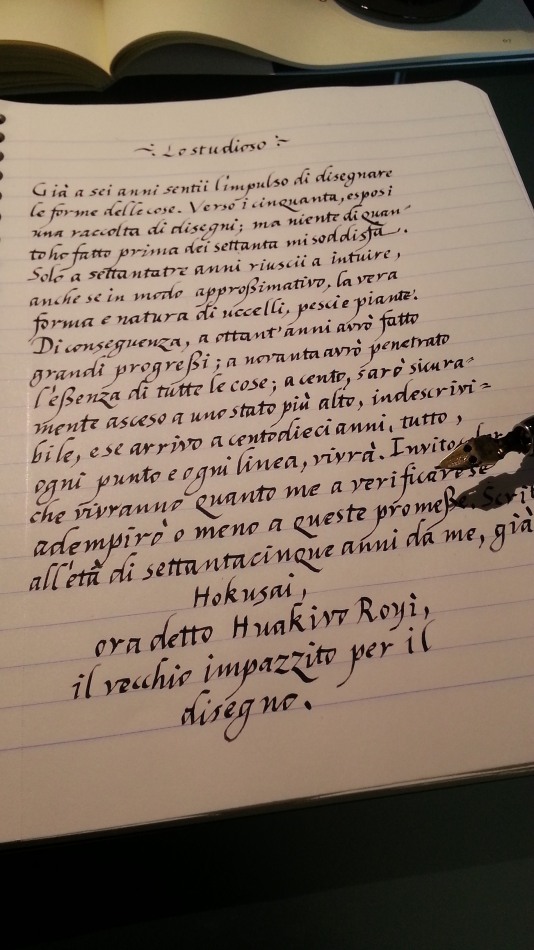 ~: Lo studioso :~
Già a sei anni sentii l'impulso di disegnare
le forme delle cose. Verso i cinquanta, esposi
una raccolta di disegni; ma niente di quan-
to ho fatto prima dei settanta mi soddisfa.
Solo a settantatre anni riuscii a intuire,
anche se in modo approßimativo, la vera
forma e natura di uccelli, pesci e piante.
Di conseguenza, a ottant'anni avrò fatto
grandi progreßi; a novanta avrò penetrato
l'eßenza di tutte le cose; a cento, sarò sicura-
mente asceso a uno stato più alto, indescrivi=
bile, e se arrivo a centodieci anni, tutto,
ogni punto e ogni linea, vivrà. Invito
che vivranno quanto me a verificare se
adempirò o meno a queste promeße. Scrit
all'età di settantacinque anni da me, già
Hokusai,
ora detto Huakivo Royi,
il vecchio impazzito per il
disegno.